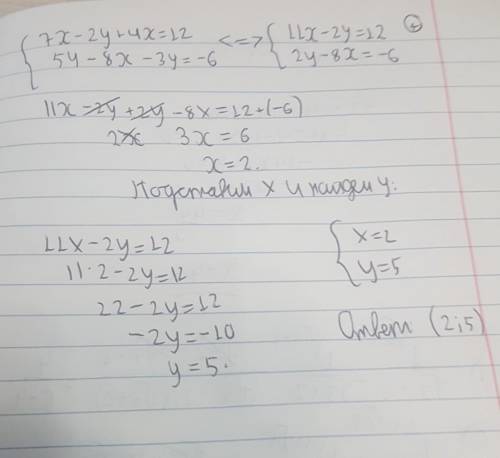 { 7x-2y+4x=12 <=> { 11x-2y=12 (+)
5y-8x-3y=-6 2y-8x=-6
11x-2y+2y-8x=12+(-6)
3x=6
x=2.
Подставим x и найдем y:
11x-2y=12
11·2-2y=12
22-2y=12
-2y=-10
y=5.
{ x=2
y=5
Ответ: (2;5)